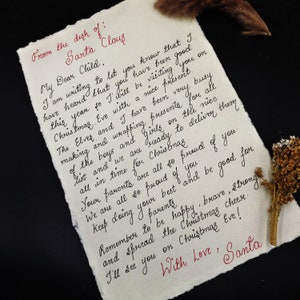 From the desk of:
Santa Claus
My Dear Child,
I am writing to let you know that I
have heard that you have been good
this year so I will be visiting you on
Christmas Eve with a nice present.
The Elves and I have been very busy
making and wrapping presents for all
of the boys and girls on the nice
list and we are ready to deliver them
all in time for Christmas.
Your parents are all so proud of you
We are all so proud of you
Keep doing your best and be good for
your parents.
Remember to be happy, brave, strong
and spread the Christmas cheer.
I'll see you on Christmas Eve!
With Love, Santa